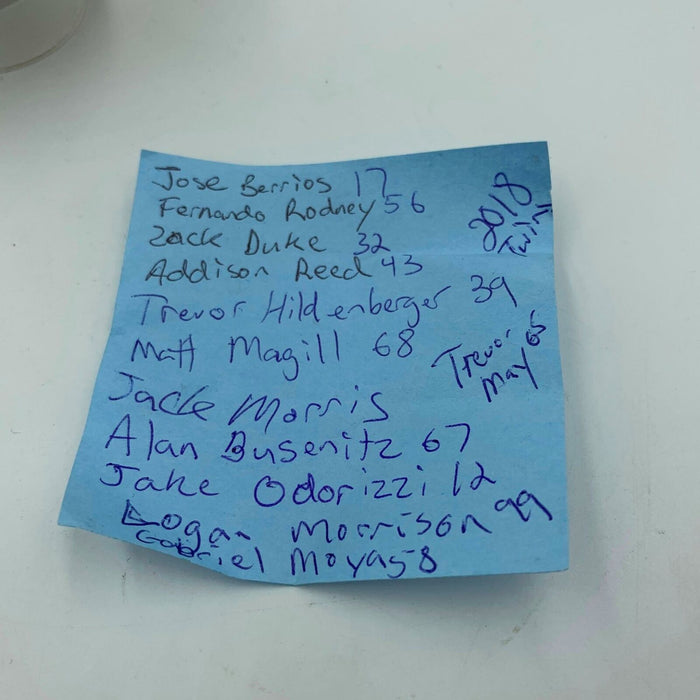 Jose Berrios 17
Fernando Rodney 56
Zack Duke 32
Addison Reed 43
2018
Twins
Trevor Hildenberger 39
Matt Magill 68
Trevor
May 65
Jack Morris
Alan Busenitz 67
Jake Odorizzi 12
Logan Morrison 99
Gabriel Moya 58